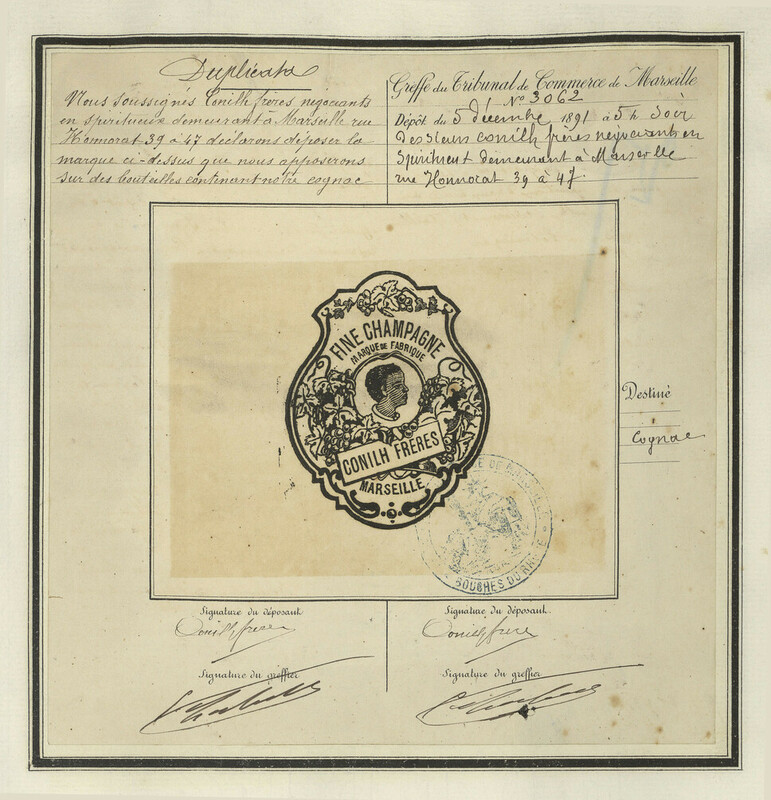 Duplicata
Nous soussignés Conilh frères négociants
en spiritueux demeurant à Marseille rue
Honnorat 39 à 47 déclarons déposer la
marque ci-dessus que nous apposerons
sur des bouteilles contenant notre cognac
Greffe du Tribunal de Commerce de Marseille
N° 3062
Dépôt du 5 décembre 1891 à 5 h Soir
Des Sieurs Conilh frères négociant en
Spiritueux demeurant à Marseille
rue Honnorat 39 à 47
FINE CHAMPAGNE
MARQUE DE FABRIQUE
CONILH FRÈRES
MARSEILLE
Destiné
Cognac
BOUCHES DU RHÔNE
Signature du déposant
Conilh frères
Signature du déposant
Conilh frères
Signature du greffier
Signature du greffier